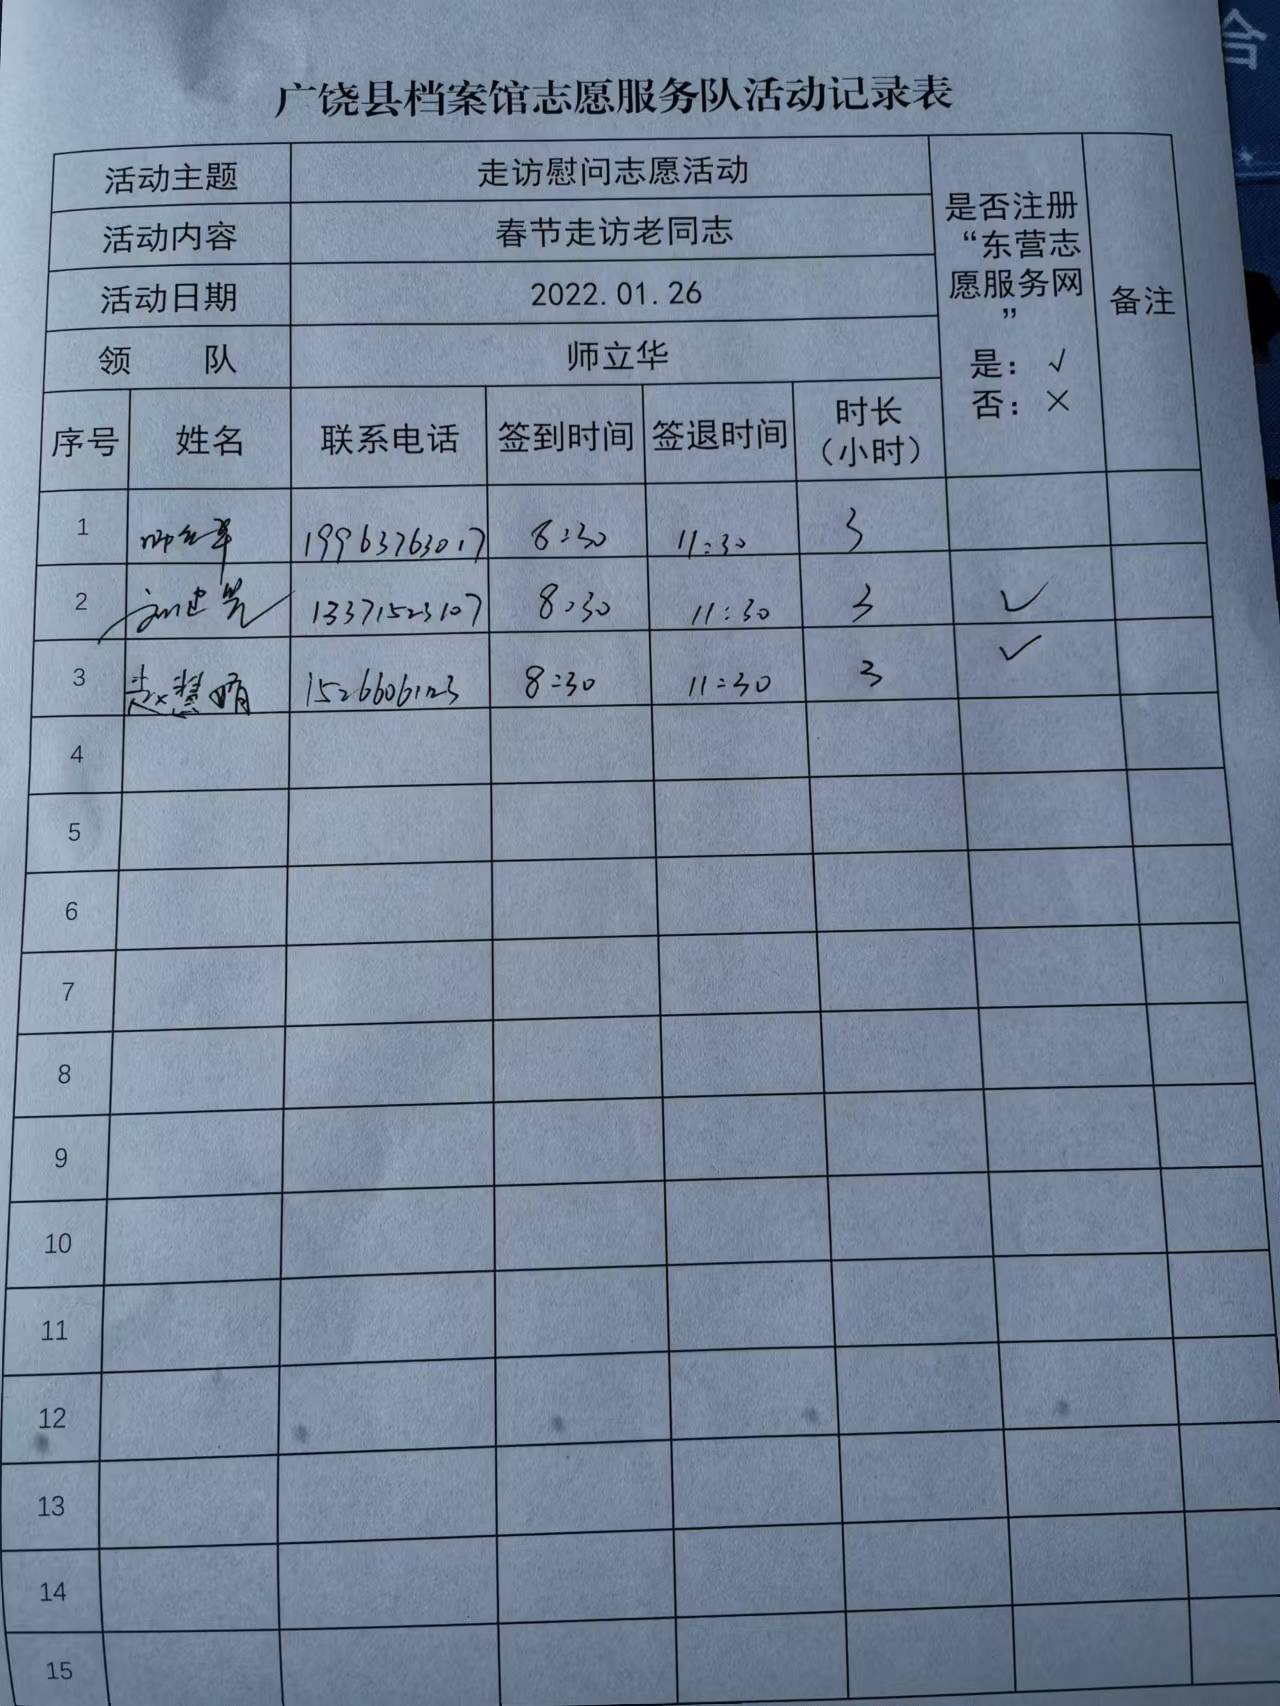 合
广饶县档案馆志愿服务队活动记录表
活动主题 走访慰问志愿活动
活动内容 春节走访老同志
活动日期 2022.01.26
领 队 师立华
是否注册
“东营志
愿服务网
”
是：√
否：×
备注
序号 姓名 联系电话 签到时间 签退时间 时长
（小时）
1 师立华 19963763017 8:30 11:30 3
2 13371523107 8:30 11:30 3 ✓
3 赵慧娟 15266061123 8:30 11:30 3 ✓
4
5
6
7
8
9
10
11
12
13
14
15